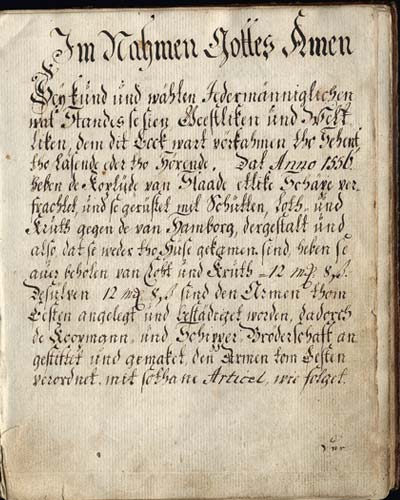 Im Nahmen Gottes Amen
Sey kund und wahlen Jedermänniglichen
wat Standes se sien Geestliken und Welt
liken, dem dit Boek wart vörkahmen tho Sehent
tho Lasende eder tho Hörende. Dat Anno 1556.
heben de Koplüde van Staade etlike Schäpe ver,
frachtet, und se gerüstet mit Schütten, Loth und
Kruth gegen de van Hamborg, dergestalt und
also dat se weder tho Huse gekamen sind, heben se
auer beholen van Loht und Kruth = 12 mk 8 ß.
Desülven 12 mk 8 ß sind den Armen thom
Besten angelegt und bestädiget worden, dadorch
de Koopmann und Schipper Broderschaft an
gestifftet und gemaket, den Armen tom Besten
verordnet, mit sothane Articel, wie folget.